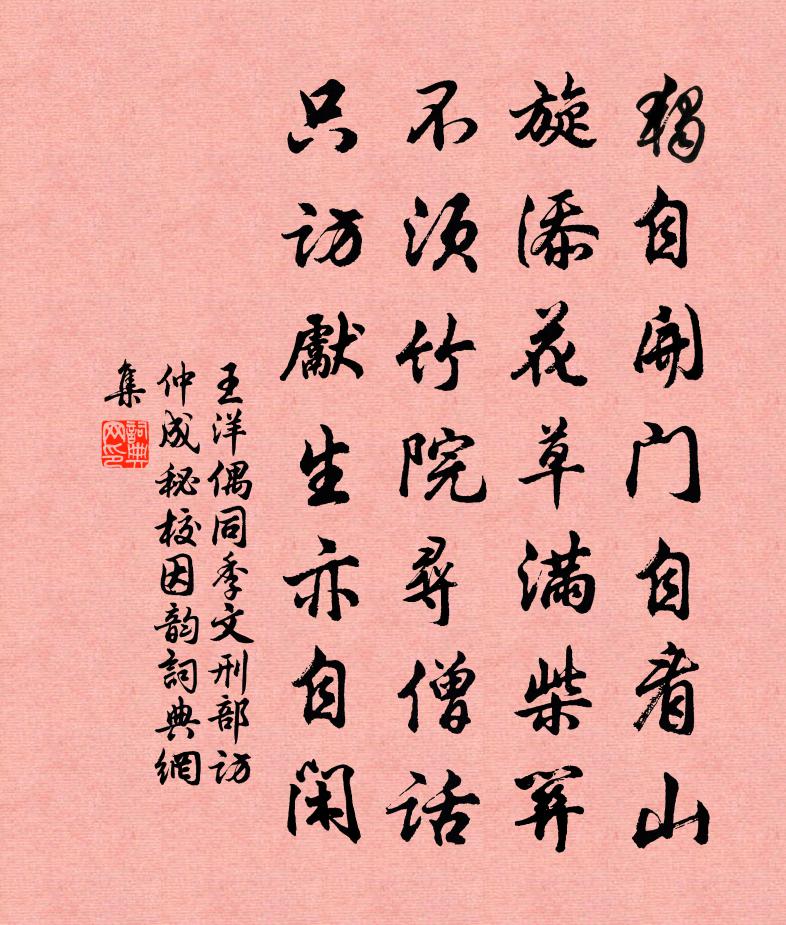 獨自開门自看山
旋添花草滿柴關
不須竹院尋僧話
只訪獻生亦自閑
王洋偶同季文刑部訪
仲成秘校因韵詞典網
集
詞典
网印